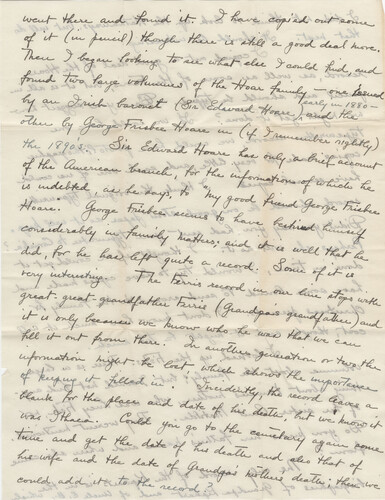 went there and found it. I have copied out some
of it (in pencil) though there is still a good deal more.
Then I began looking to see what else I could find, and
found two large volumines of the Hoar family - one issued
early in 1880-
by an Irish baronet (Sir Edward Hoare) and the
other by George Frisbee Hoare in (if I remember rightly)
the 1890s. Sir Edward Hoare has only a brief account
of the American branch, for the information of which he
is indebted, as he says, to "my good friend George Frisbee
Hoare. George Frisbee seems to have himself
considerably in family matters, and it is well that he
did, for he has left quite a record. Some of it is
very interesting. The Ferris record in our line stops with
great-great-grandfather Ferris (Grandpa's grandfather) and
it is only because we know who he was that we can
fill it out from there. In another generation or two the
information might be lost, which shows the importance
of keeping it filled in. Incidently, the record leaves a
blank for the place and date of his death, but we know it
was Ithaca. Could you go to the cemetery again some
time and get the date of his death and also that of
his wife and the date of Grandpa's mothers death; then we
could add it to the record?